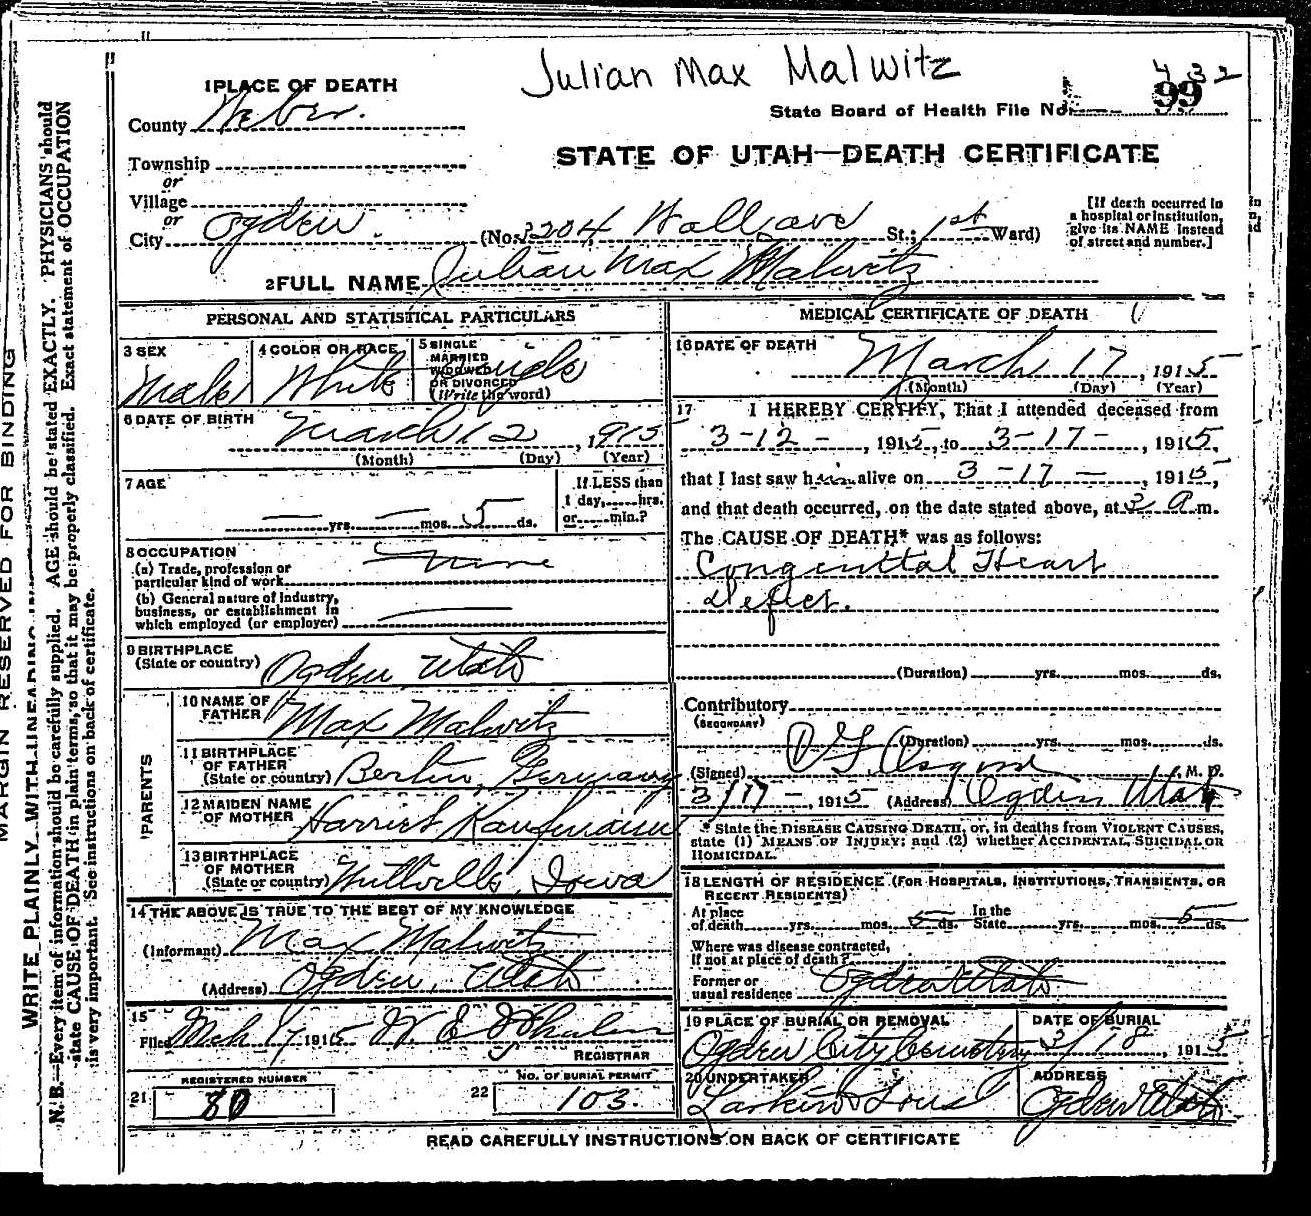 Julian Max Malwitz
432
1 PLACE OF DEATH
State Board of Health File No. 99
County Weber.
STATE OF UTAH—DEATH CERTIFICATE
Township
or
Village
or
City Ogden. (No. 3204 St.; 1st Ward)
[If death occurred in
a hospital or institution,
give its NAME instead
of street and number.]
2 FULL NAME Julian Max Malwitz
PERSONAL AND STATISTICAL PARTICULARS
3 SEX
Male
4 COLOR OR RACE
White
5 SINGLE
MARRIED
WIDOWED
OR DIVORCED
(Write the word)
Single
6 DATE OF BIRTH
March 12, 1915
(Month) (Day) (Year)
7 AGE
— yrs. — mos. 5 ds.
If LESS than
1 day, hrs.
or min.?
8 OCCUPATION
(a) Trade, profession or
particular kind of work
None
(b) General nature of industry,
business, or establishment in
which employed (or employer) —
9 BIRTHPLACE
(State or country) Ogden Utah
PARENTS
10 NAME OF
FATHER Max Malwitz
11 BIRTHPLACE
OF FATHER
(State or country) Berlin, Germany
12 MAIDEN NAME
OF MOTHER Harriet
13 BIRTHPLACE
OF MOTHER
(State or country) Iowa
14 THE ABOVE IS TRUE TO THE BEST OF MY KNOWLEDGE
(Informant) Max Malwitz
(Address) Ogden, Utah
15
Filed Mch 17 1915 W. E. Whalen
REGISTRAR
21 REGISTERED NUMBER
80
22 NO. OF BURIAL PERMIT
103.
MEDICAL CERTIFICATE OF DEATH
16 DATE OF DEATH
March 17, 1915
(Month) (Day) (Year)
17 I HEREBY CERTIFY, That I attended deceased from
3-12-, 1915, to 3-17-, 1915,
that I last saw him alive on 3-17—, 1915,
and that death occurred, on the date stated above, at 3 a m.
The CAUSE OF DEATH* was as follows:
Congenittal Heart
Defect.
(Duration) yrs. mos. ds.
Contributory
(SECONDARY)
(Duration) yrs. mos. ds.
(Signed) M. D.
3/17-, 1915 (Address) Ogden Utah
* State the DISEASE CAUSING DEATH, or, in deaths from VIOLENT CAUSES,
state (1) MEANS OF INJURY; and (2) whether ACCIDENTAL, SUICIDAL OR
HOMICIDAL.
18 LENGTH OF RESIDENCE (FOR HOSPITALS, INSTITUTIONS, TRANSIENTS, OR
RECENT RESIDENTS)
At place
of death yrs. mos. 5 ds.
In the
State yrs. mos. 5 ds.
Where was disease contracted,
If not at place of death?
Former or
usual residence Ogden Utah
19 PLACE OF BURIAL OR REMOVAL
Ogden City Cemetery
DATE OF BURIAL
3/18, 1915
20 UNDERTAKER
Larkin & Sons
ADDRESS
Ogden Utah
READ CAREFULLY INSTRUCTIONS ON BACK OF CERTIFICATE
MARGIN RESERVED FOR BINDING
WRITE PLAINLY, WITH UNFADING
N. B.—Every item of information should be carefully supplied. AGE should be stated EXACTLY. PHYSICIANS should
state CAUSE OF DEATH in plain terms, so that it may be properly classified. Exact statement of OCCUPATION
is very important. See instructions on back of certificate.